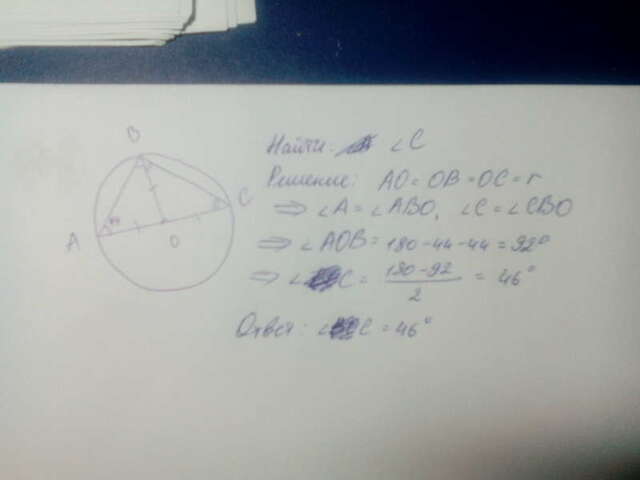 B
C
A
O
Найти: ∠C
Решение: AO = OB = OC = r
⇒ ∠A = ∠ABO, ∠C = ∠CBO
⇒ ∠AOB = 180 - 44 - 44 = 92°
⇒ ∠C = (180 - 92) / 2 = 46°
Ответ: ∠C = 46°